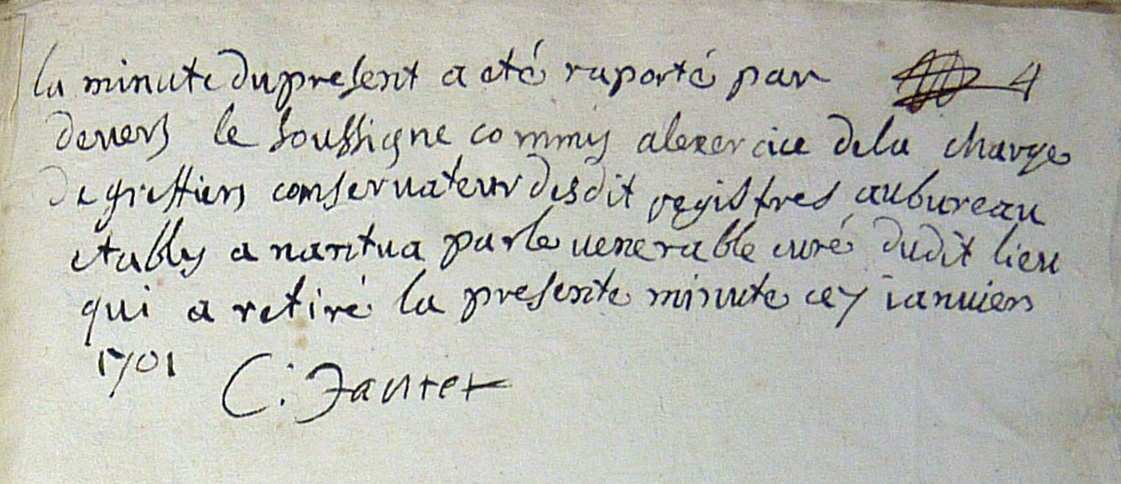 la minute du present a eté raporté par 4
devers le soussigne commis alexercice dela charge
de greffiers conservateur desdit registres au bureau
etablis a nantua par le venerable curé dudit lieu
qui a retiré la presente minute ce 7 ianvier
1701 C. Jantet